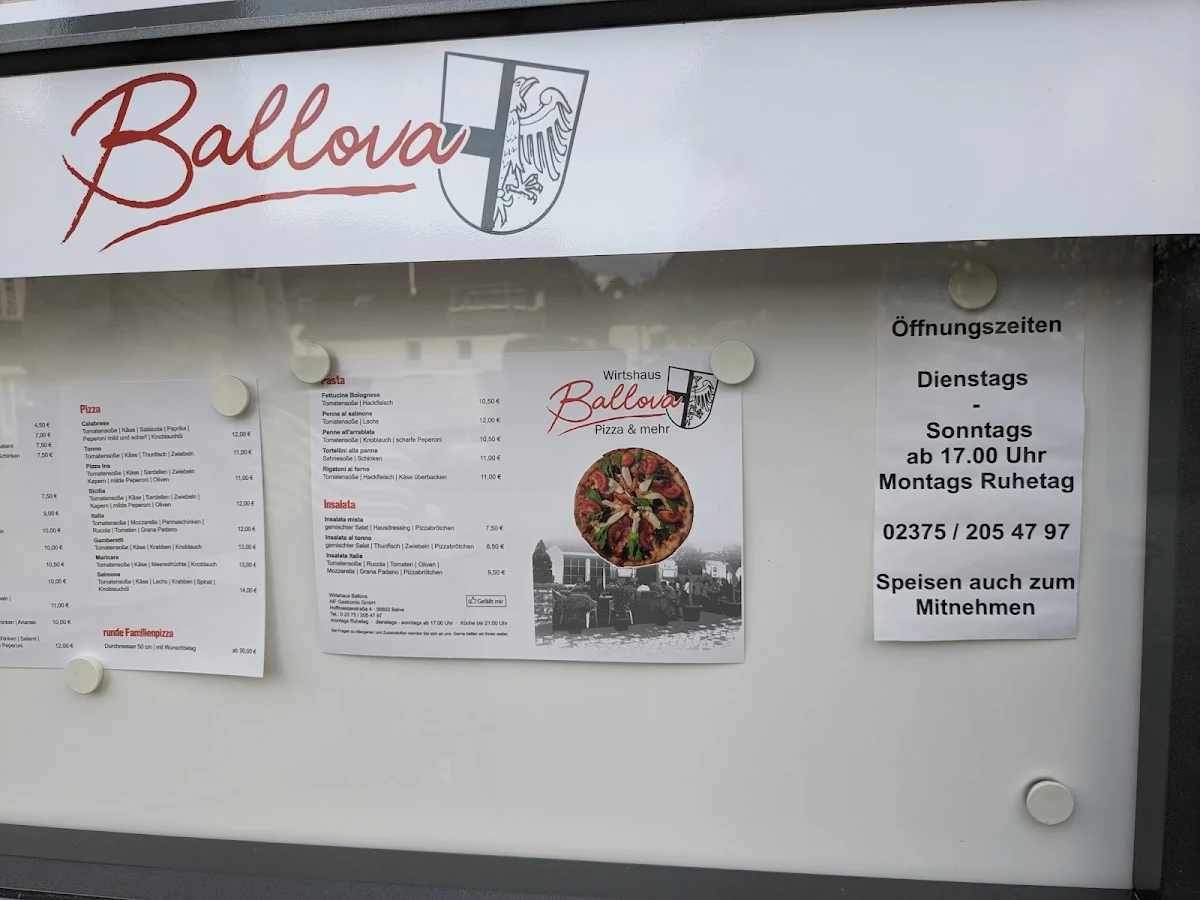 Ballova
4,50 €
7,00 €
7,50 €
7,50 €
7,50 €
9,00 €
10,00 €
10,00 €
10,50 €
10,00 €
11,00 €
Ananas 10,00 €
Salami |
Peperoni 12,00 €
Pizza
Calabrese
Tomatensoße | Käse | Salsiccia | Paprika |
Peperoni mild und scharf | Knoblauchöl 12,00 €
Tonno
Tomatensoße | Käse | Thunfisch | Zwiebeln 11,00 €
Pizza Ina
Tomatensoße | Käse | Sardellen | Zwiebeln
Kapern | milde Peperoni | Oliven 11,00 €
Sicilia
Tomatensoße | Käse | Sardellen | Zwiebeln |
Kapern | milde Peperoni | Oliven 12,00 €
Italia
Tomatensoße | Mozzarella | Parmaschinken |
Rucola | Tomaten | Grana Padano 12,00 €
Gamberetti
Tomatensoße | Käse | Krabben | Knoblauch 13,00 €
Marinara
Tomatensoße | Käse | Meeresfrüchte | Knoblauch 13,00 €
Salmone
Tomatensoße | Käse | Lachs | Krabben | Spinat |
Knoblauchöl 14,00 €
runde Familienpizza
Durchmesser 50 cm | mit Wunschbelag ab 30,00 €
Pasta
Fettucine Bolognese
Tomatensoße | Hackfleisch 10,50 €
Penne al salmone
Tomatensoße | Lachs 12,00 €
Penne all'arrabiata
Tomatensoße | Knoblauch | scharfe Peperoni 10,50 €
Tortellini alla panna
Sahnesoße | Schinken 11,00 €
Rigatoni al forno
Tomatensoße | Hackfleisch | Käse überbacken 11,00 €
Insalata
Insalata mista
gemischter Salat | Hausdressing | Pizzabrötchen 7,50 €
Insalata al tonno
gemischter Salat | Thunfisch | Zwiebeln | Pizzabrötchen 8,50 €
Insalata Italia
Tomatensoße | Rucola | Tomaten | Oliven |
Mozzarella | Grana Padano | Pizzabrötchen 9,50 €
Wirtshaus Ballova
AIF Gastromix GmbH
Hoffmeisterstraße 4 · 58802 Balve
Tel.: 0 23 75 / 205 47 97
montags Ruhetag · dienstags - sonntags ab 17:00 Uhr · Küche bis 21:00 Uhr
Bei Fragen zu Allergenen und Zusatzstoffen wenden Sie sich an uns. Gerne helfen wir Ihnen weiter.
Gefällt mir
Wirtshaus
Ballova
Pizza & mehr
Öffnungszeiten
Dienstags
-
Sonntags
ab 17.00 Uhr
Montags Ruhetag
02375 / 205 47 97
Speisen auch zum
Mitnehmen